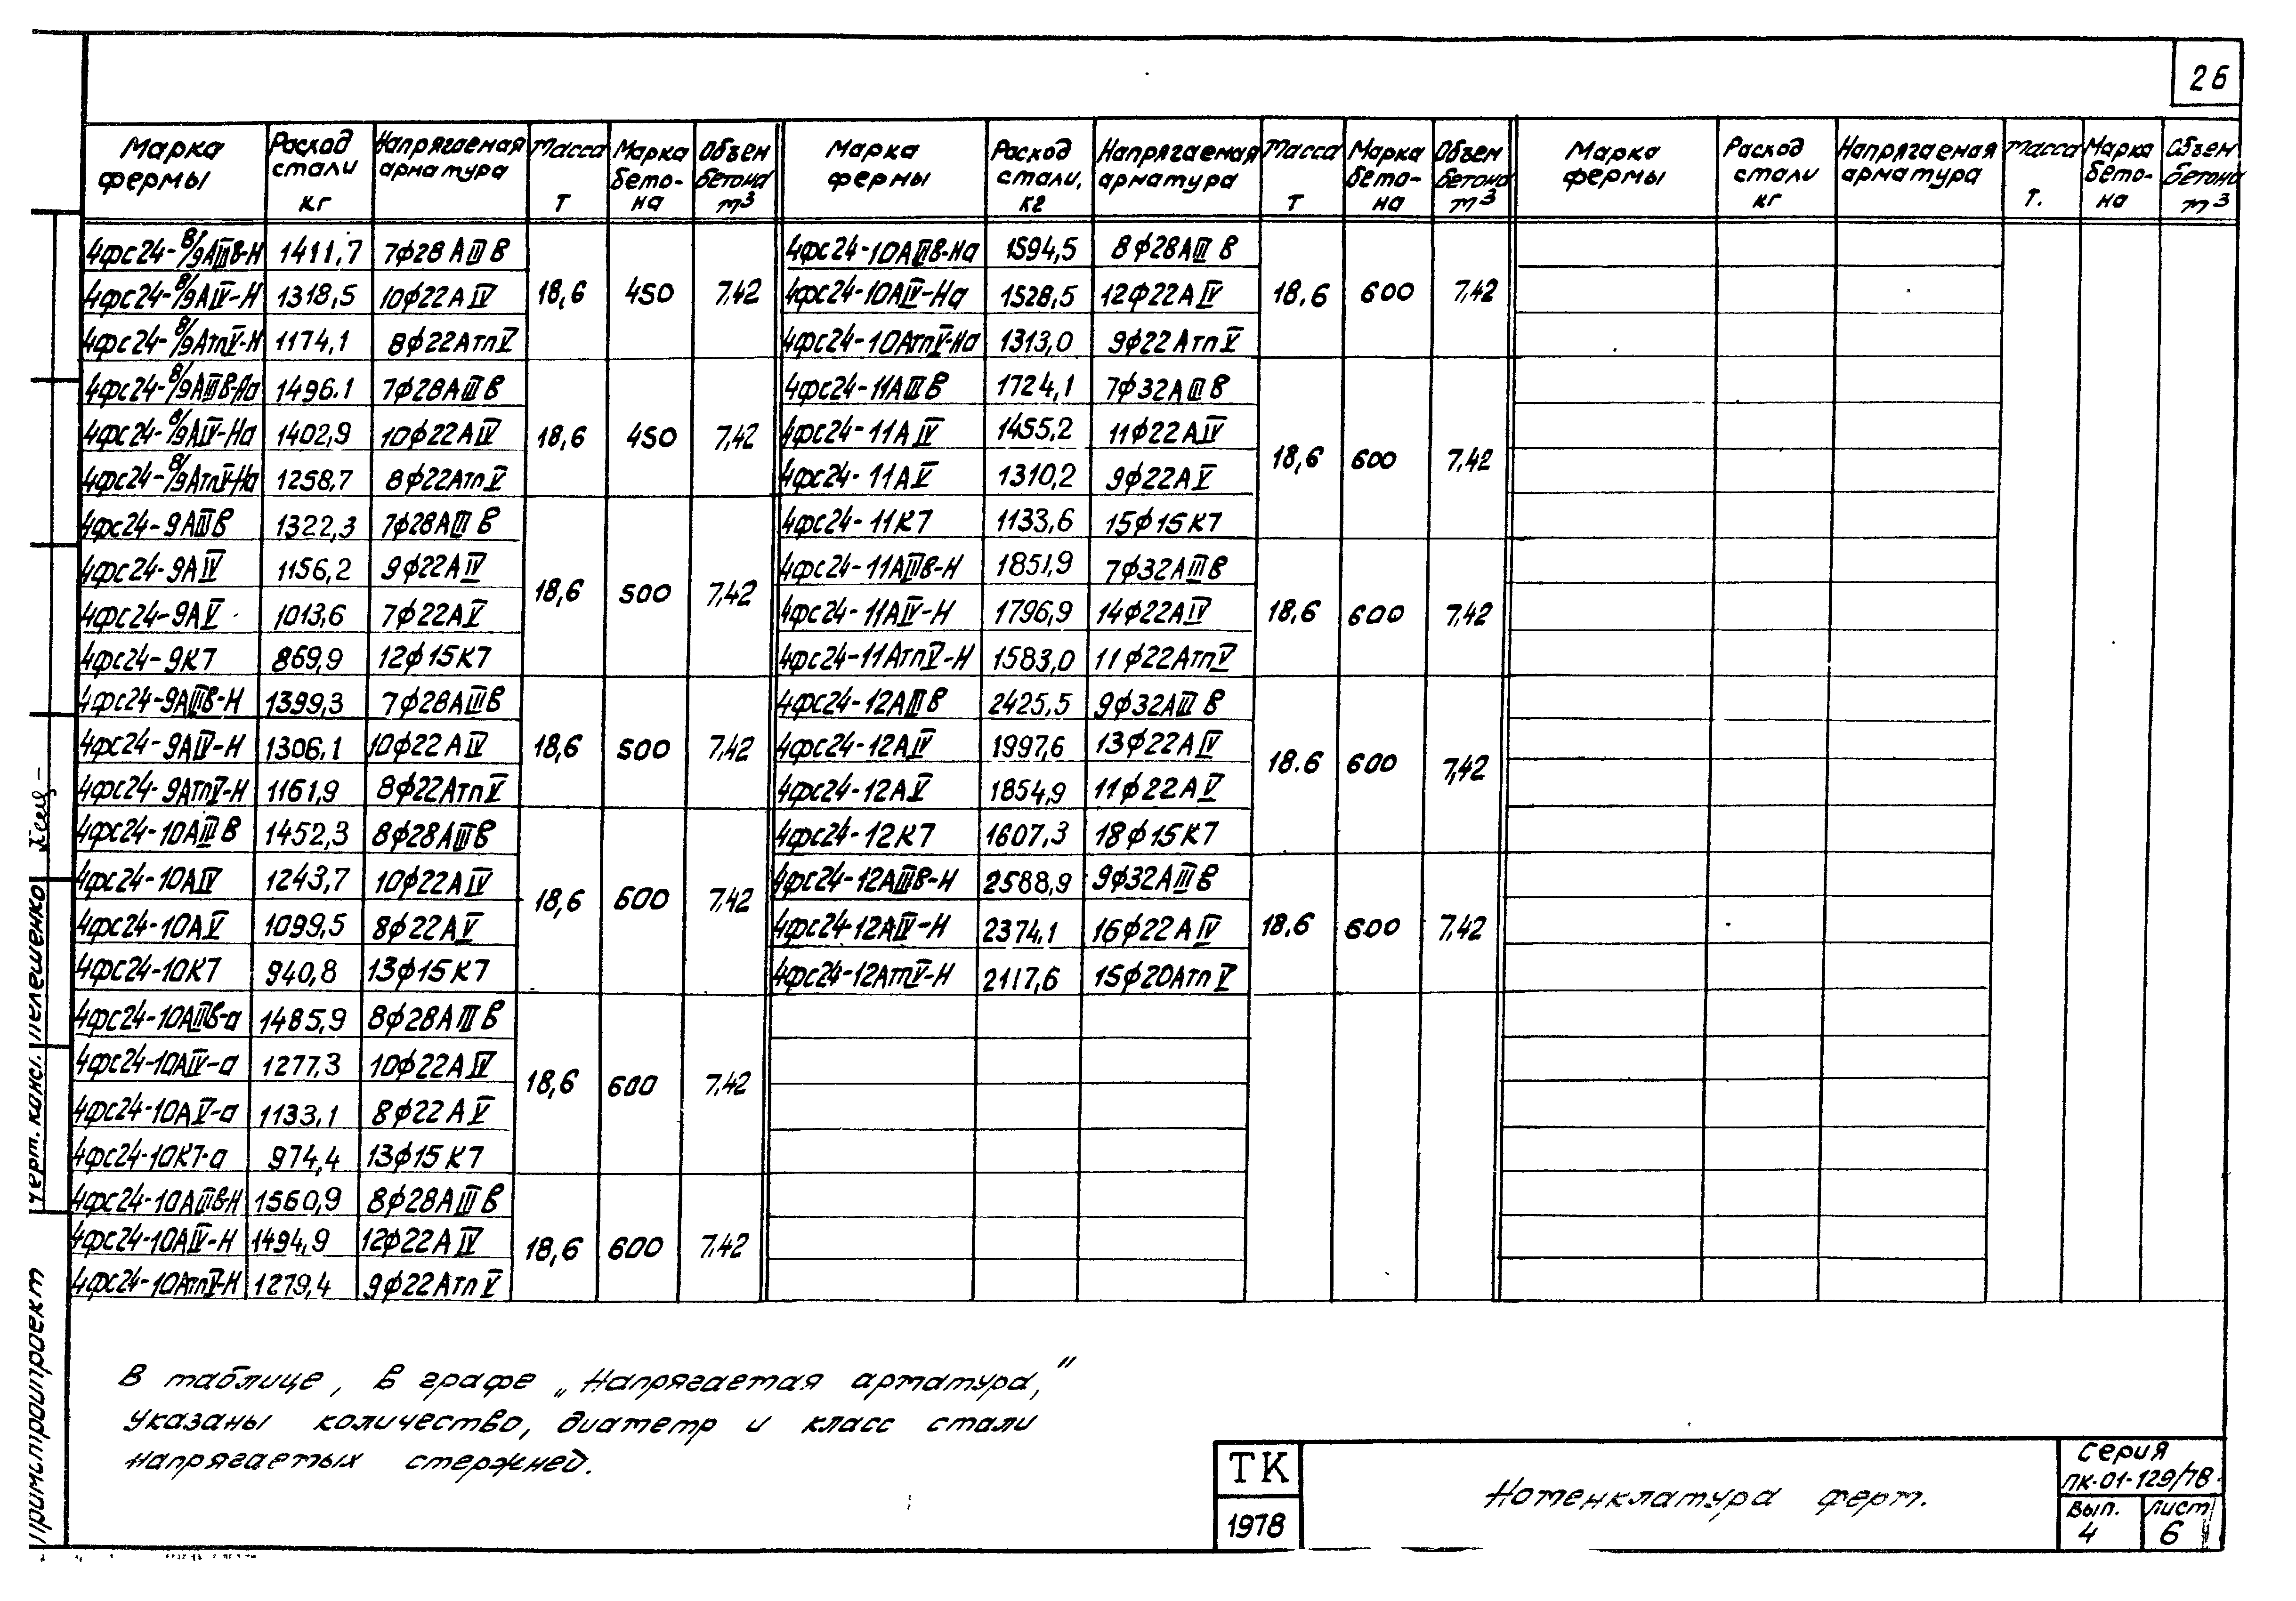 26
Марка фермы | Расход стали кг | Напрягаемая арматура | Масса т | Марка бетона | Объем бетона м³
4фс24-8/9АIIIв-Н | 1411,7 | 7ф28АIIIв | 18,6 | 450 | 7,42
4фс24-8/9АIV-Н | 1318,5 | 10ф22АIV
4фс24-8/9АтпV-Н | 1174,1 | 8ф22АтпV
4фс24-8/9АIIIв-На | 1496.1 | 7ф28АIIIв | 18,6 | 450 | 7,42
4фс24-8/9АIV-На | 1402,9 | 10ф22АIV
4фс24-8/9АтпV-На | 1258,7 | 8ф22АтпV
4фс24-9АIIIв | 1322,3 | 7ф28АIIIв | 18,6 | 500 | 7,42
4фс24-9АIV | 1156,2 | 9ф22АIV
4фс24-9АV | 1013,6 | 7ф22АV
4фс24-9К7 | 869,9 | 12ф15К7
4фс24-9АIIIв-Н | 1399,3 | 7ф28АIIIв | 18,6 | 500 | 7,42
4фс24-9АIV-Н | 1306,1 | 10ф22АIV
4фс24-9АтпV-Н | 1161,9 | 8ф22АтпV
4фс24-10АIIIв | 1452,3 | 8ф28АIIIв | 18,6 | 600 | 7,42
4фс24-10АIV | 1243,7 | 10ф22АIV
4фс24-10АV | 1099,5 | 8ф22АV
4фс24-10К7 | 940,8 | 13ф15К7
4фс24-10АIIIв-а | 1485,9 | 8ф28АIIIв | 18,6 | 600 | 7,42
4фс24-10АIV-а | 1277,3 | 10ф22АIV
4фс24-10АV-а | 1133,1 | 8ф22АV
4фс24-10К7-а | 974,4 | 13ф15К7
4фс24-10АIIIв-Н | 1560,9 | 8ф28АIIIв | 18,6 | 600 | 7,42
4фс24-10АIV-Н | 1494,9 | 12ф22АIV
4фс24-10АтпV-Н | 1279,4 | 9ф22АтпV
Марка фермы | Расход стали, кг | Напрягаемая арматура | Масса т | Марка бетона | Объем бетона м³
4фс24-10АIIIв-На | 1594,5 | 8ф28АIIIв | 18,6 | 600 | 7,42
4фс24-10АIV-На | 1528,5 | 12ф22АIV
4фс24-10АтпV-На | 1313,0 | 9ф22АтпV
4фс24-11АIIIв | 1724,1 | 7ф32АIIIв | 18,6 | 600 | 7,42
4фс24-11АIV | 1455,2 | 11ф22АIV
4фс24-11АV | 1310,2 | 9ф22АV
4фс24-11К7 | 1133,6 | 15ф15К7
4фс24-11АIIIв-Н | 1851,9 | 7ф32АIIIв | 18,6 | 600 | 7,42
4фс24-11АIV-Н | 1796,9 | 14ф22АIV
4фс24-11АтпV-Н | 1583,0 | 11ф22АтпV
4фс24-12АIIIв | 2425,5 | 9ф32АIIIв | 18.6 | 600 | 7,42
4фс24-12АIV | 1997,6 | 13ф22АIV
4фс24-12АV | 1854,9 | 11ф22АV
4фс24-12К7 | 1607,3 | 18ф15К7
4фс24-12АIIIв-Н | 2588,9 | 9ф32АIIIв | 18,6 | 600 | 7,42
4фс24-12АIV-Н | 2374,1 | 16ф22АIV
4фс24-12АтпV-Н | 2117,6 | 15ф20АтпV
Марка фермы | Расход стали кг | Напрягаемая арматура | Масса т. | Марка бетона | Объем бетона м³
В таблице, в графе „Напрягаемая арматура,“
указаны количество, диаметр и класс стали
напрягаемых стержней.
ТК
1978
Номенклатура ферм.
Серия
ПК-01-129/78
Вып.
4
Лист
6
черт. конст. Пелешенко